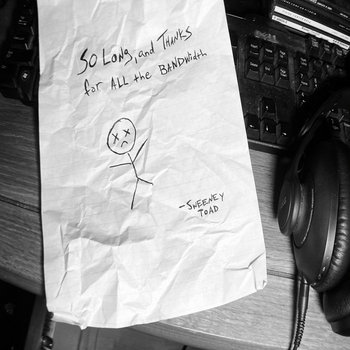 So Long, and THANKS
for ALL the BANDWidth
-SWEENEY
TOAD